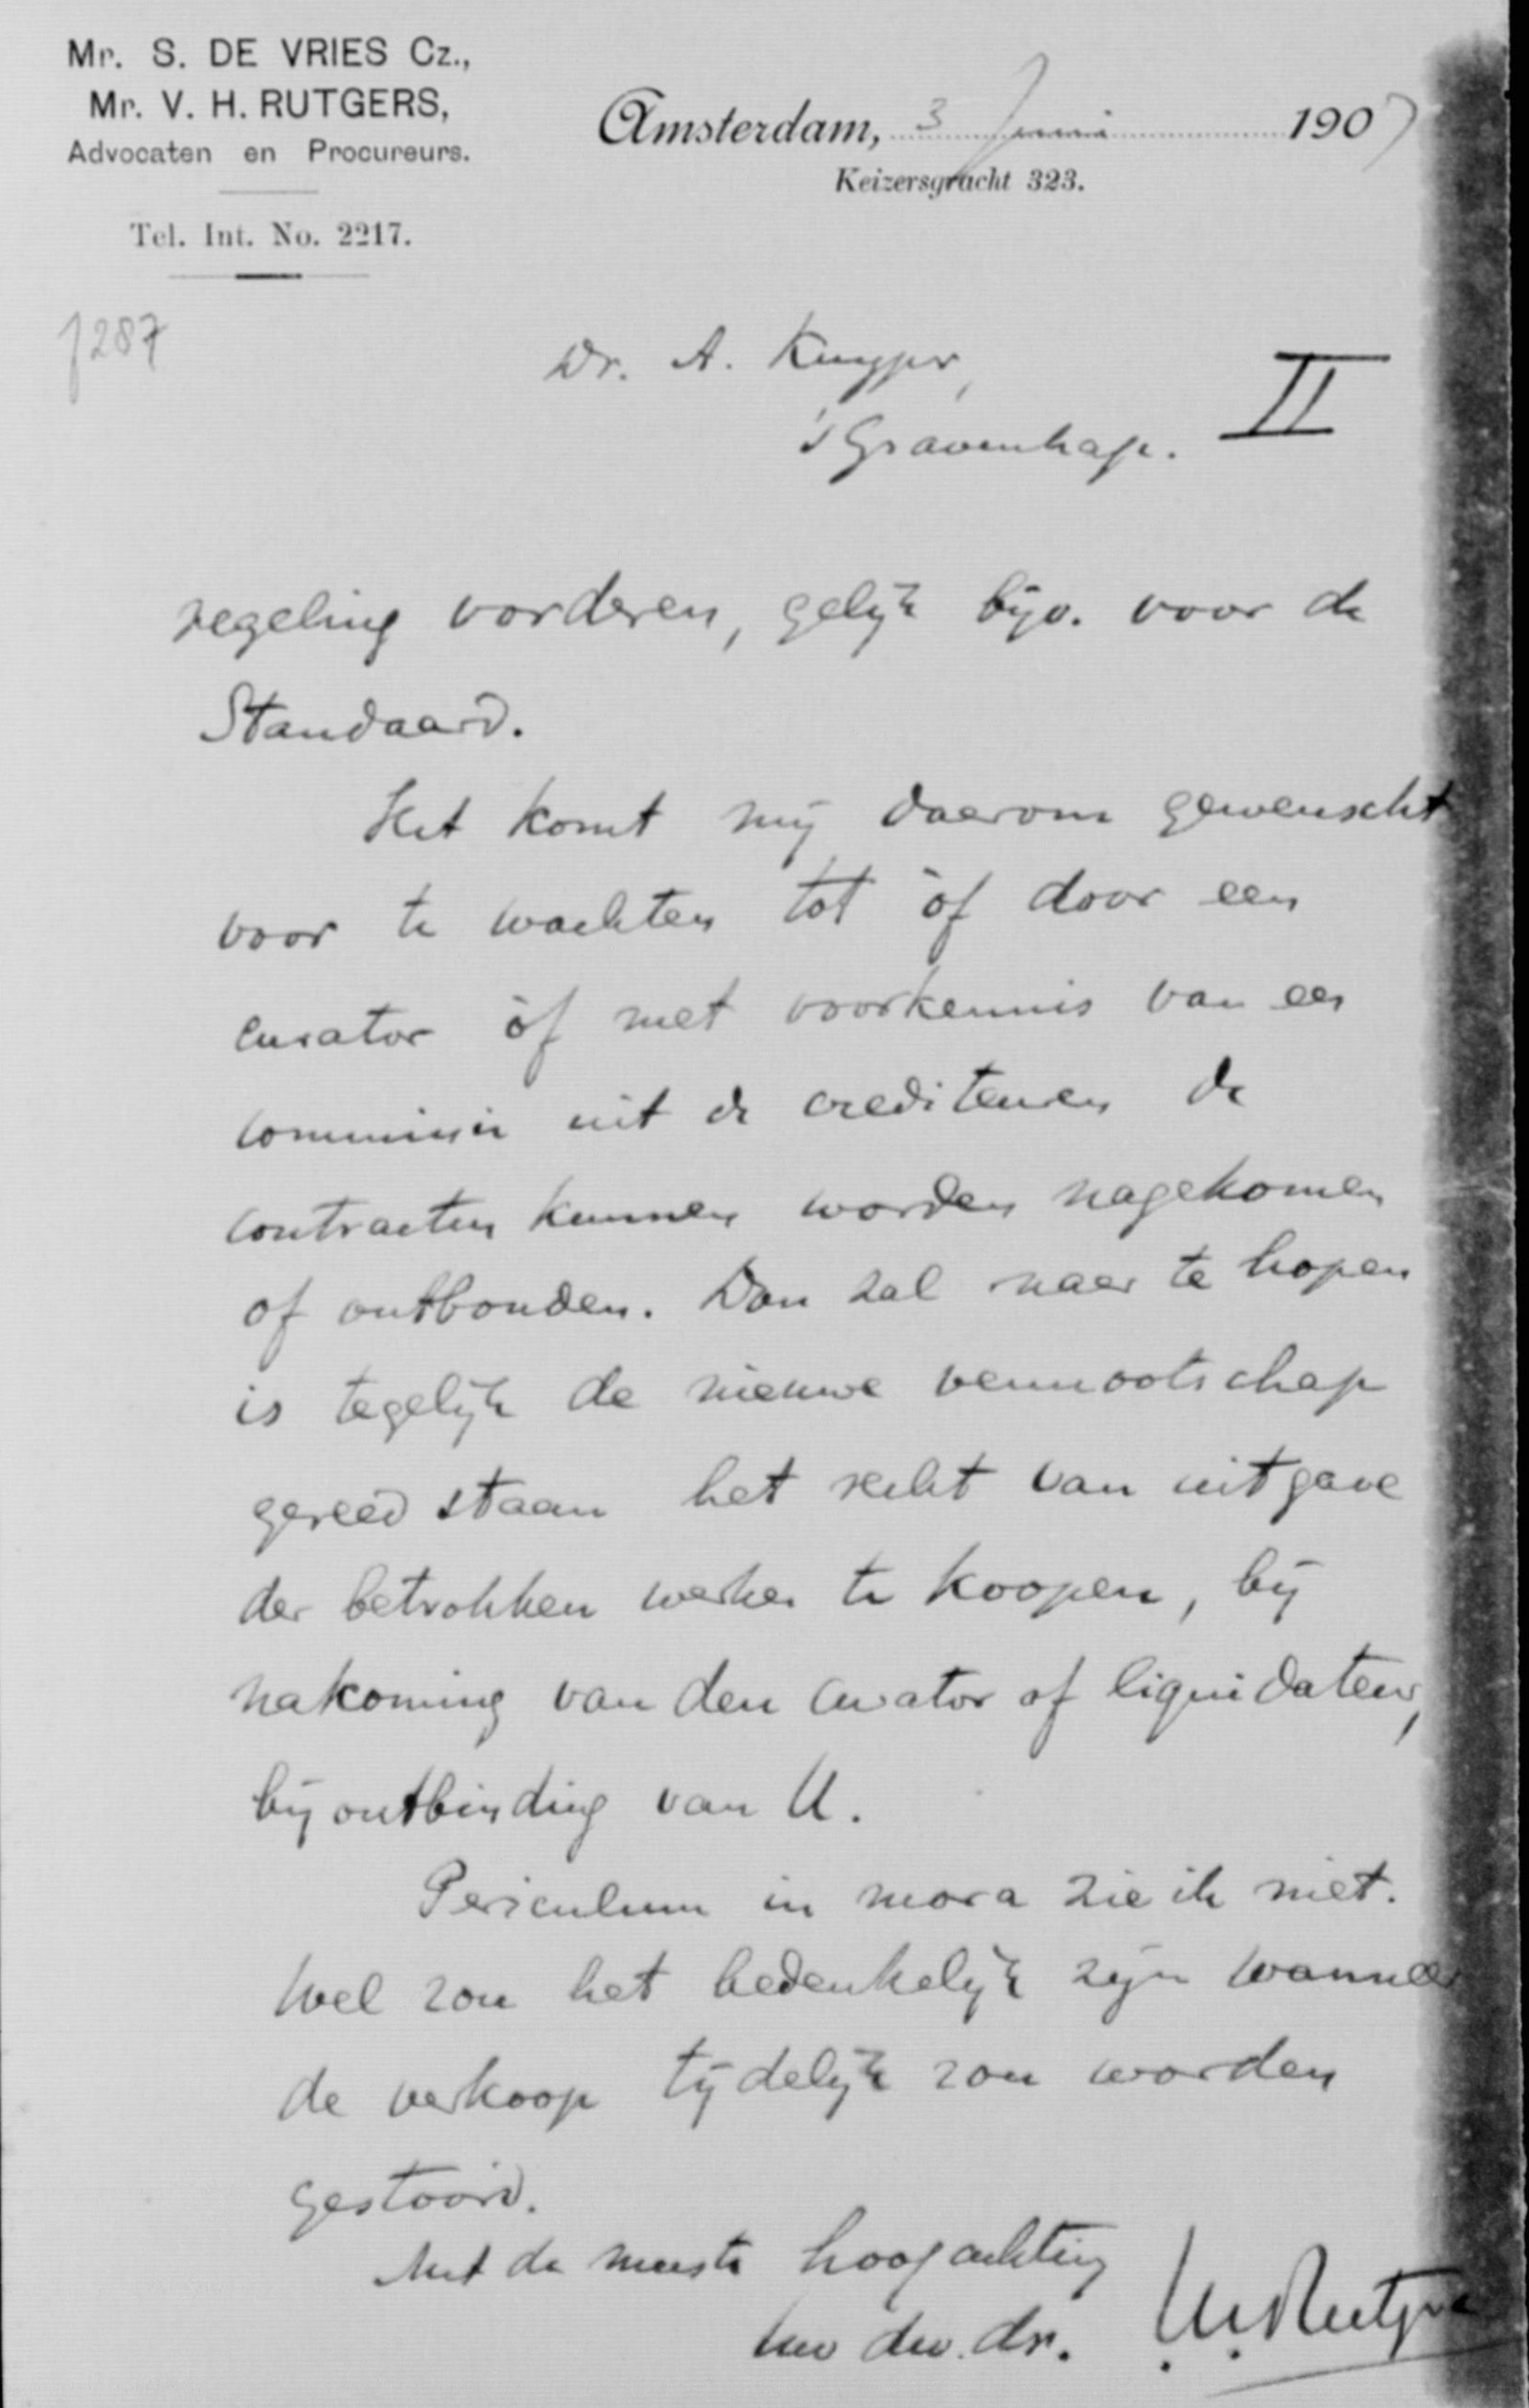 Mr. S. DE VRIES Cz.,
Mr. V. H. RUTGERS,
Advocaten en Procureurs.
Tel. Int. No. 2217.
Amsterdam, 3 Juni 1907
Keizersgracht 323.
7287
Dr. A. Kuyper,
's Gravenhage.
II
regeling vorderen, gelijk bijv. voor de
Standaard.
Het komt mij daarom gewenscht
voor te wachten tot òf door een
curator òf met voorkennis van een
commissie uit de crediteuren de
contracten kunnen worden nagekomen
of ontbonden. Dan zal naar te hopen
is tegelijk de nieuwe vennootschap
gereed staan het recht van uitgave
der betrokken werken te koopen, bij
nakoming van den curator of liquidateur,
bij ontbinding van U.
Periculum in mora zie ik niet.
Wel zou het bedenkelijk zijn wanneer
de verkoop tijdelijk zou worden
gestoord.
Met de meeste hoogachting
Uw dw. dr. VHRutgers